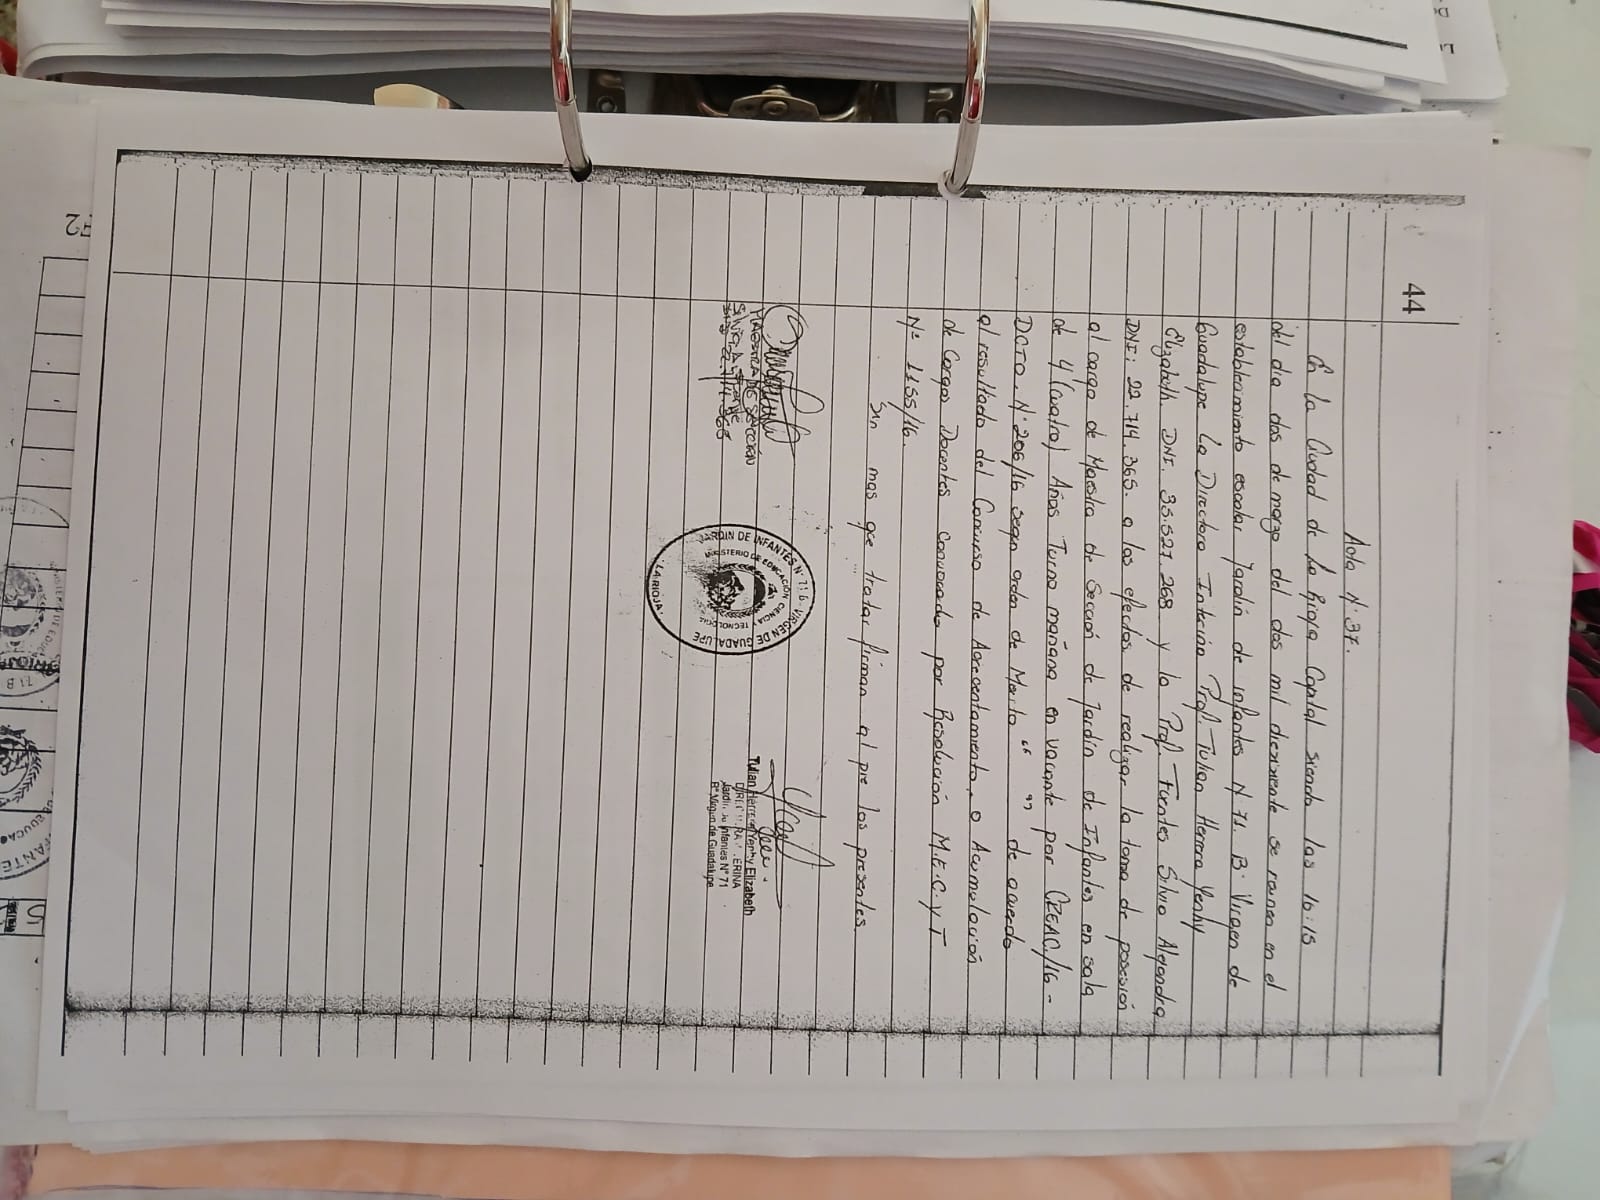 44
Acta N: 37.
En la Ciudad de La Rioja Capital siendo las 10:15
del día dos de marzo del dos mil diecisiete se reunen en el
establecimiento escolar Jardín de infantes N 71. B. Virgen de
Guadalupe la Directora Interina Prof. Tulian Herrera Yenhy
Elizabeth. DNI. 35.527.268 y la Prof. Fuentes Silvia Alejandra
DNI: 22.714.365. a los efectos de realizar la toma de posesión
al cargo de Maestra de Sección de Jardín de Infantes en sala
de 4 (cuatro) Años Turno mañana en vacante por
DCTO. N° 206/16 según orden de Merito “ ” de acuerdo
al resultado del Concurso de Acrecentamiento, o Acumulación
de Cargos Docentes Convocado por Resolución M.E.C. y T
N° 1155/16.
Sin mas que tratar firman al pie los presentes.
MAESTRA DE SECCIÓN
JARDIN DE INFANTES N° 71 B VIRGEN DE GUADALUPE
MINISTERIO DE EDUCACIÓN CIENCIA Y TECNOLOGIA
LA RIOJA
Tulian Herrera Yenhy Elizabeth
Jardín de Infantes N° 71
B° Virgen de Guadalupe